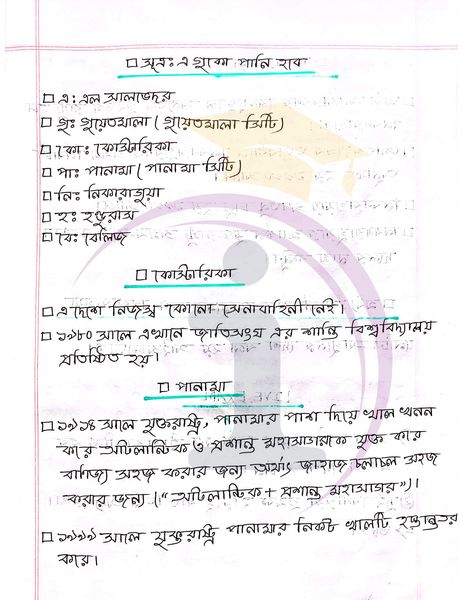 □ সূত্র: এ গুকো পানি হবে
□ এ: এল সালভেদর
□ গু: গুয়েতমালা (গুয়েতমালা সিটি)
□ কো: কোস্টারিকা
□ পা: পানামা (পানামা সিটি)
□ নি: নিকারাগুয়া
□ হ: হন্ডুরাস
□ বে: বেলিজ
□ কোস্টারিকা
□ এ দেশে নিজস্ব কোনো সেনাবাহিনী নেই।
□ ১৯৮০ সালে এখানে জাতিসংঘ এর শান্তি বিশ্ববিদ্যালয়
প্রতিষ্ঠিত হয়।
□ পানামা
□ ১৯১৪ সালে যুক্তরাষ্ট্র, পানামার পাশ দিয়ে খাল খনন
করে আটলান্টিক ও প্রশান্ত মহাসাগরকে যুক্ত করে
বাণিজ্য সহজ করার জন্য অর্থাৎ জাহাজ চলাচল সহজ
করার জন্য (“আটলান্টিক + প্রশান্ত মহাসাগর”)।
□ ১৯৯৯ সালে যুক্তরাষ্ট্র পানামার নিকট খালটি হস্তান্তর
করে।